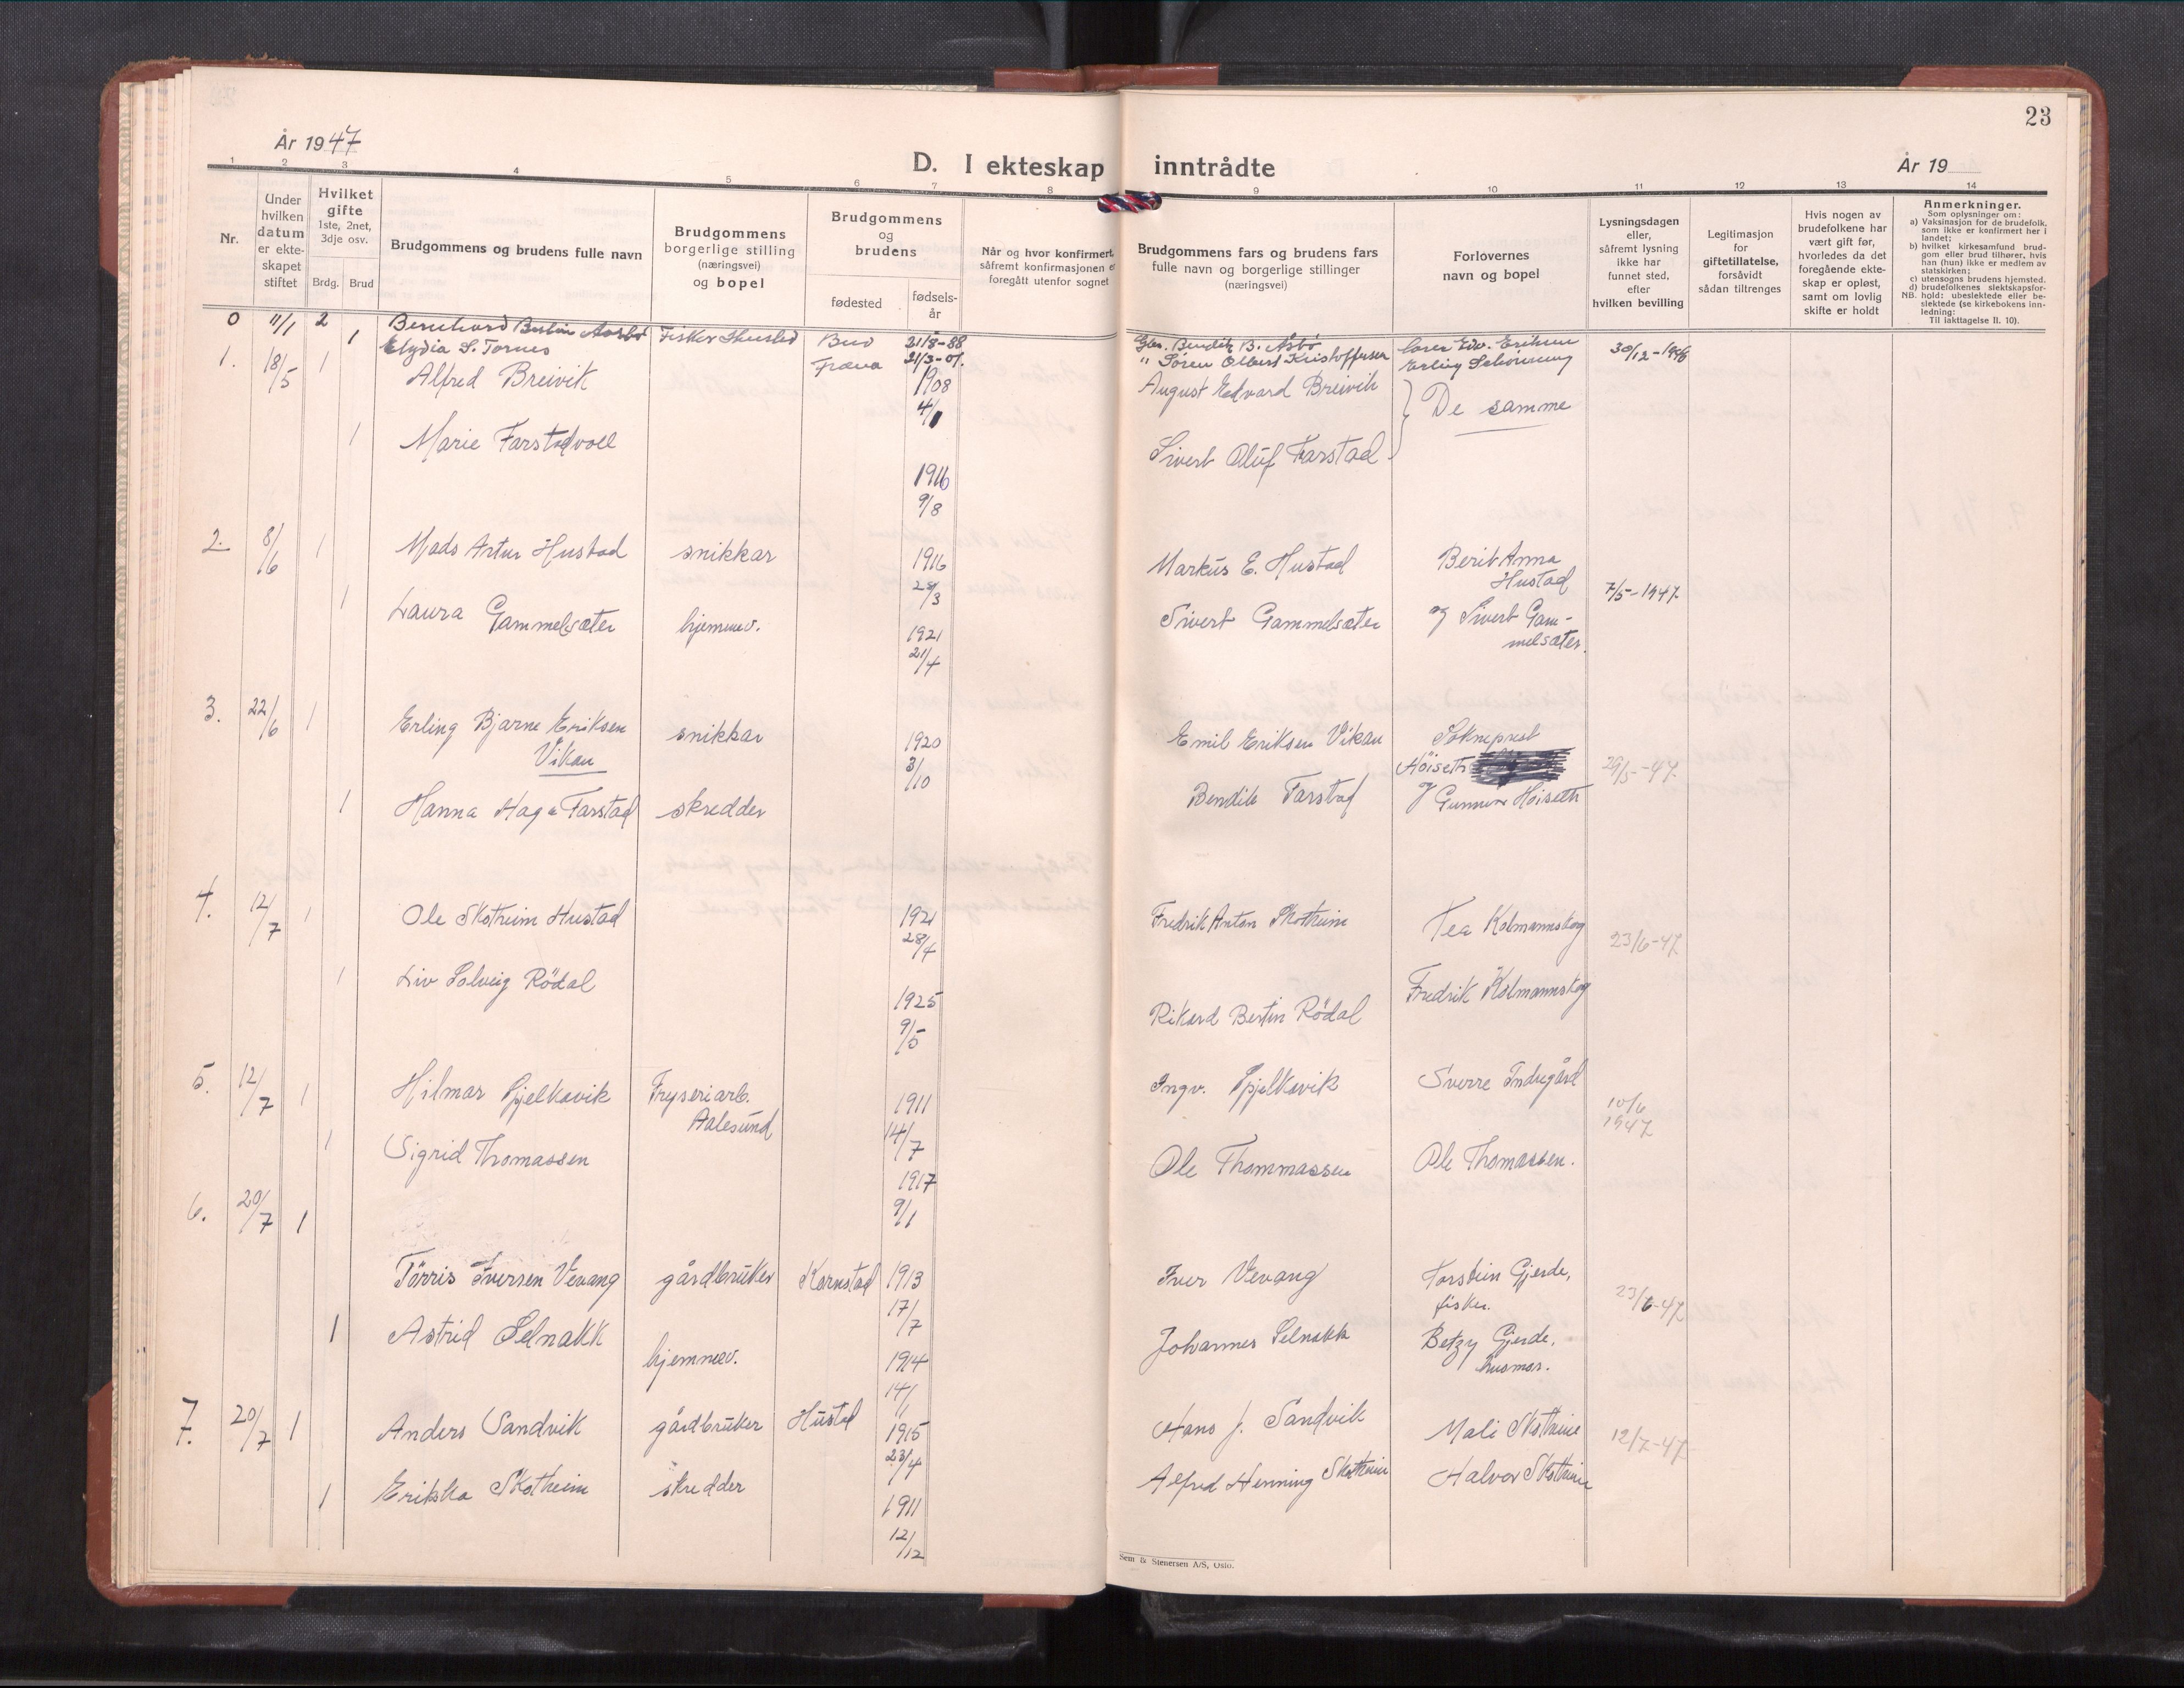 23
År 1947
D. I ekteskap inntrådte
År 19
1 2 3 4 5 6 7 8 9 10 11 12 13 14
Nr.
Under hvilken datum er ekteskapet stiftet
Hvilket gifte
1ste, 2net, 3dje osv.
Brdg. Brud
Brudgommens og brudens fulle navn
Brudgommens borgerlige stilling (næringsvei) og bopel
Brudgommens og brudens
fødested
fødsels-år
Når og hvor konfirmert, såfremt konfirmasjonen er foregått utenfor sognet
Brudgommens fars og brudens fars fulle navn og borgerlige stillinger (næringsvei)
Forlovernes navn og bopel
Lysningsdagen eller, såfremt lysning ikke har funnet sted, efter hvilken bevilling
Legitimasjon for giftetillatelse, forsåvidt sådan tiltrenges
Hvis nogen av brudefolkene har vært gift før, hvorledes da det foregående ekte-skap er opløst, samt om lovlig skifte er holdt
Anmerkninger.
Som oplysninger om:
a) Vaksinasjon for de brudefolk, som ikke er konfirmert her i landet;
b) hvilket kirkesamfund brud-gom eller brud tilhører, hvis han (hun) ikke er medlem av statskirken;
c) utensogns brudens hjemsted.
d) brudefolkenes slektskapsfor-hold: ubeslektede eller be-slektede (se kirkebokens inn-ledning:
NB.
Til iakttagelse II. 10).
0 11/1 2 Bernhard Fisker Hustad Bud 21/8-88 B. Edv. Eriksen 30/12-1946
1 S. Tornes Fræna 21/3-07. " Søren Olbert Kristoffersen Erling
1. 18/5 1 Alfred Breivik 1908 4/1 August Edvard Breivik De samme
1 Marie Farstadvoll 1916 9/8 Sivert Oluf Farstad
2. 8/6 1 Mads Artur Hustad snikkar 1916 28/3 Markus E. Hustad Berit Anna Hustad 7/5-1947.
1 Laura Gammelsæter hjemmev. 1921 21/4 Sivert Gammelsæter og Sivert Gam-melsæter.
3. 22/6 1 Erling Bjarne Eriksen Vikan snikkar 1920 3/10 Emil Eriksen Vikan Sokneprest Höiseth 29/5-47.
1 Hanna Haga Farstad skredder Bendik Farstad og Gunnvor Höiseth
4. 12/7 1 Ole Skotheim Hustad 1921 28/4 Fredrik Anton Skotheim Tea Kolmannskog 23/6-47.
1 Liv Solveig Rödal 1925 9/5 Rikard Bertin Rödal Fredrik Kolmannskog
5. 12/7 1 Hilmar Spjelkavik Fryseriarb. Aalesund 1911 14/7 Ingv. Spjelkavik Sverre Indregård 10/6 1947
1 Sigrid Thomassen 1917 9/1 Ole Thommassen Ole Thomassen.
6. 20/7 1
Tørris Iversen Vevang gårdbruker Kornstad 1913 17/7 Iver Vevang Torstein Gjerde, fisker. 23/6-47.
1 Astrid Selnakk hjemmev. 1914 14/1 Johannes Selnakk Betzy Gjerde, husmor.
7. 20/7 1 Anders Sandvik gårdbruker Hustad 1915 23/4 Hans J. Sandvik Mali Skotheim 12/7-47
1 Erikka Skotheim skredder 1911 12/12 Alfred Henning Skotheim Halvor Skotheim
Sem & Stenersen A/S, Oslo.